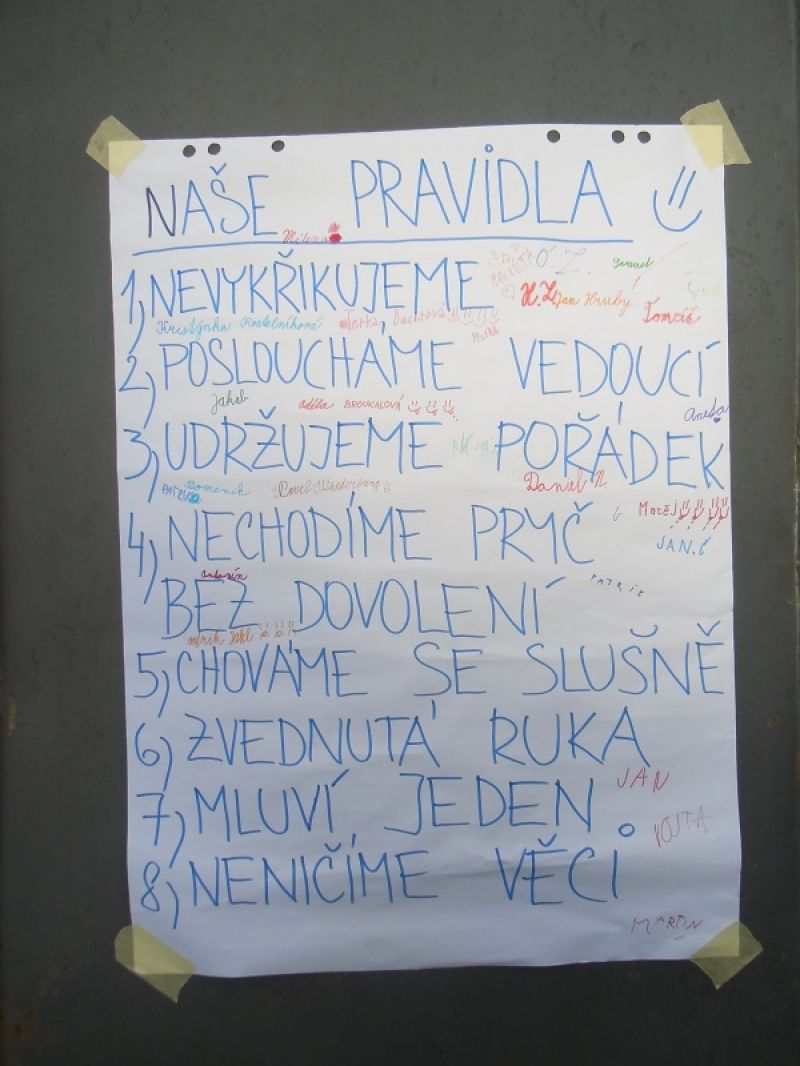 NAŠE PRAVIDLA
Milena
1, NEVYKŘIKUJEME
MARKÉTA
O Z.
Samuel
H. Z.
Jan Hruby
Tomáš
Kristýnka Kostelníková
Terka Buchtová
2, POSLOUCHÁME VEDOUCÍ
Jakub
Adéla BROUKALOVÁ
Aneta
3, UDRŽUJEME POŘÁDEK
Dominik
Pavel
Daniel N.
Matěj
4, NECHODÍME PRYČ
JAN.Č
Antonín
PATRIK
BEZ DOVOLENÍ
5, CHOVÁME SE SLUŠNĚ
6, ZVEDNUTÁ RUKA
JAN
7, MLUVÍ JEDEN
VOJTA
8, NENIČÍME VĚCI
MARTIN